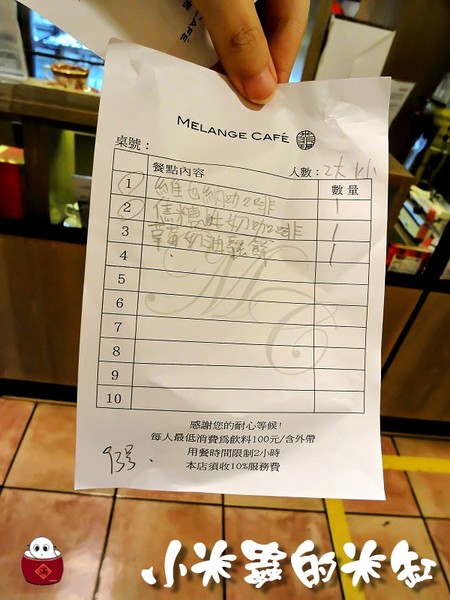 CAFÉ
MELANGE CAFÉ
桌號：
餐點內容 人數：2大 小 數量
1 維也納咖啡 1
2 焦糖牛奶咖啡 1
3 草莓奶油鬆餅 1
4
5
6
7
8
9
10
感謝您的耐心等候!
每人最低消費為飲料100元/含外帶
用餐時間限制2小時
本店須收10%服務費
93号.
小米蟲的米缸